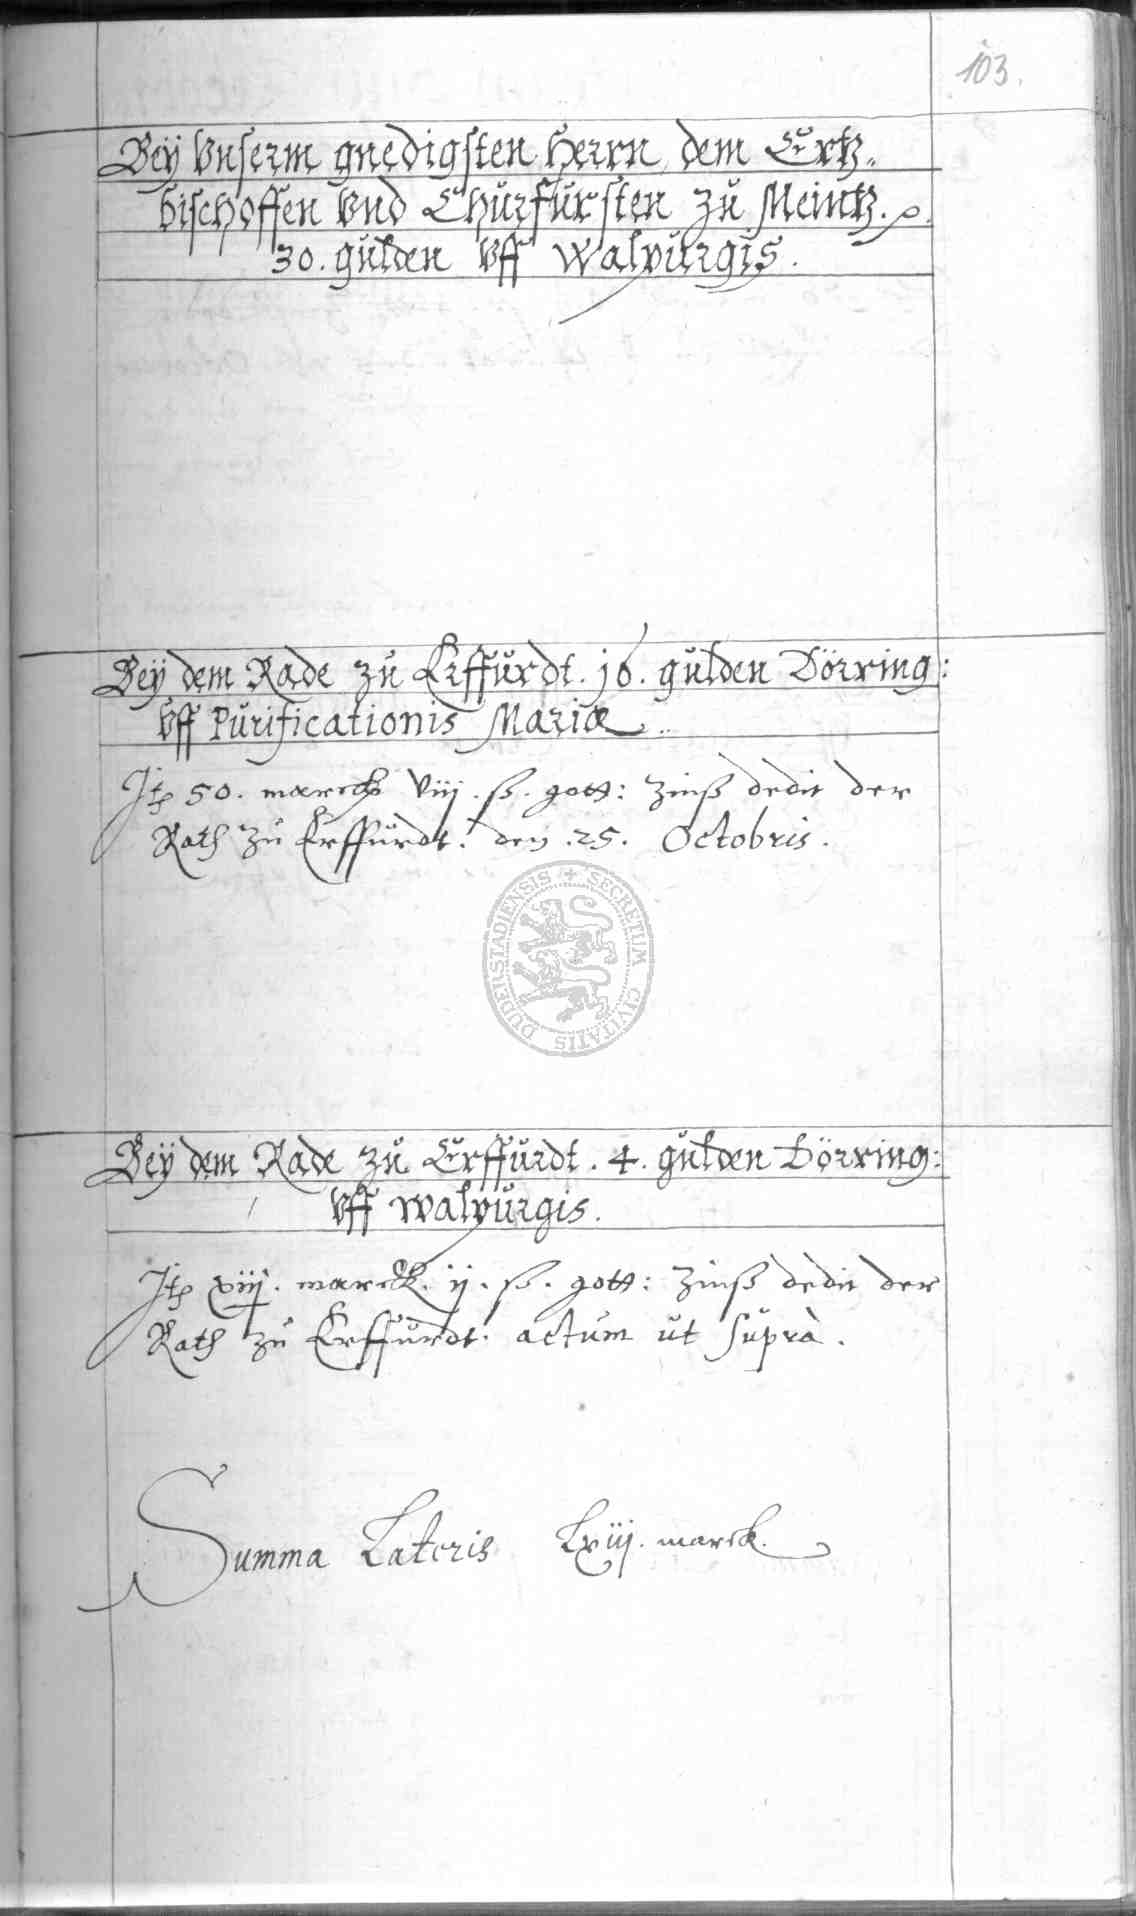 103.
Beÿ Vnserm gnedigsten Herrn, dem Ertz„
bischoffen Vnd Churfürsten zu Meintz. p.
30. gulden Vff Walpurgis.
Beÿ dem Rade zu Erffurdt. 16. gulden Dörring:
Vff Purificationis Mariæ.
Itp 50. marck Viij. ß. gott: Zinß dedit der
Rath zu Erffurdt. den .25. Octobris.
DUDERSTADIENSIS + SECRETUM CIVITATIS
Beÿ dem Rade zu Erffurdt. 4. gulden Dörring:
Vff Walpurgis.
Itp xiij. marck. ij. ß. gott: Zinß dedit der
Rath zu Erffurdt. actum ut suprà.
Summa Lateris Lxiij. marck.